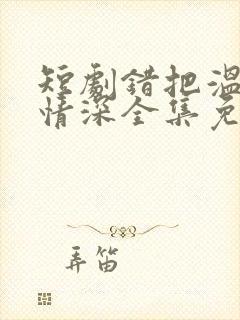 短劇錯把溫
情深全集免
弄笛